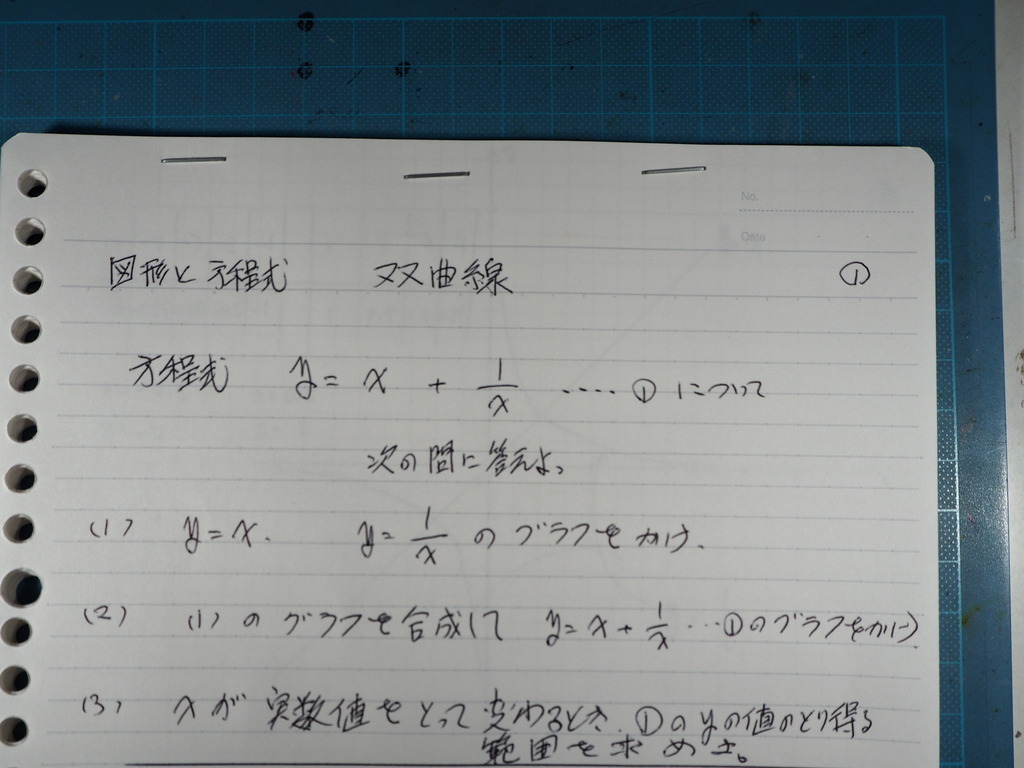 No.
Date
図形と方程式 双曲線 ①
方程式 y = x + 1/x ‥‥① について
次の問に答えよ。
(1) y = x. y = 1/x のグラフをかけ.
(2) (1)のグラフを合成して y = x + 1/x …①のグラフをかけ)
(3) xが実数値をとって変わるとき.①のyの値のとり得る
範囲を求めよ。